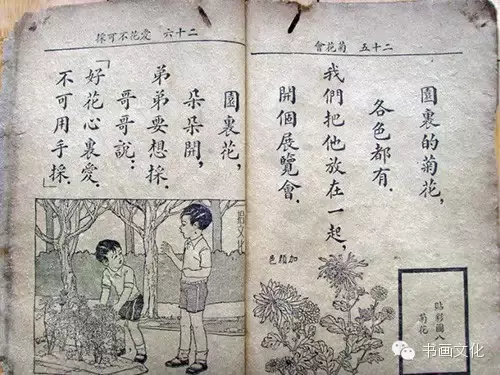 二十五 菊花會
園裏的菊花,
各色都有.
我們把他放在一起,
開個展覽會.
加顏色
貼彩圖八
菊花
二十六 愛花不可採
園裏花,
朵朵開,
弟弟要想採.
哥哥說:
「好花心裏愛.
不可用手採.」
书画文化